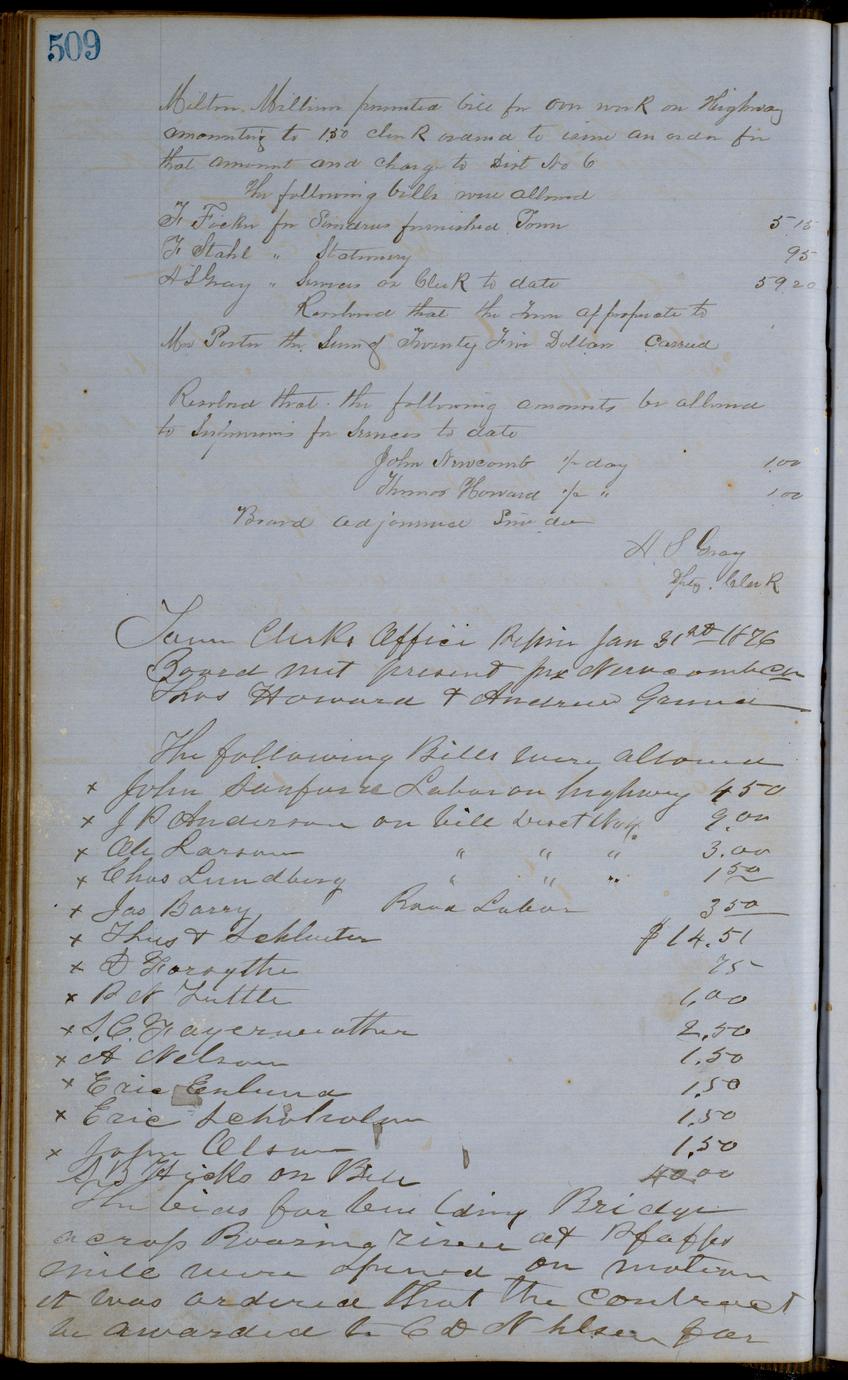 509
Milton Million presented bill for over work on Highway
amounting to 1.50 clerk ordered to issue an order for
that amount and charge to Dist No 6
The following bills were allowed
F Focke for Sundries furnished Town 5 15
F Stahl " Stationery 95
H S Gray " Services as Clerk to date 59 20
Resolved that the Town appropriate to
Mrs Porter the Sum of Twenty Five Dollars Carried
Resolved that the following amounts be allowed
to Supervisors for Services to date
John Newcomb 1/2 day 1.00
Thomas Howard 1/2 " 1 00
Board adjourned Sine die
H S Gray
Dpty. Clerk
Town Clerks Office Pepin Jan 31st 1876
Board met present Newcomb ch
Thos Howard & Andrew
The following Bills were allowed
x John Sanford Labor on highway 4 50
x J P Anderson on bill 9.00
x Ole Larson " " " 3.00
x Chas Lundberg " " " 1 50
x Jas Barry Road Labor 3 50
x & Schluter $ 14.51
x D Forsythe 75
x B N Tuttle 1.00
x S. C. Fayerweather 2.50
x A Nelson 1.50
x Eric Enlund 1.50
x Eric 1.50
x John Olson 1.50
Hicks on Bill 40.00
The bids for building Bridge
across Roaring river at Pfaffs
mill were opened on motion
it was ordered that the contract
be awarded to C D for